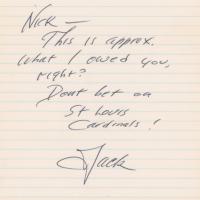 Nick —
This is approx.
what I owed you,
right?
Dont bet on
St Louis
Cardinals!
Jack